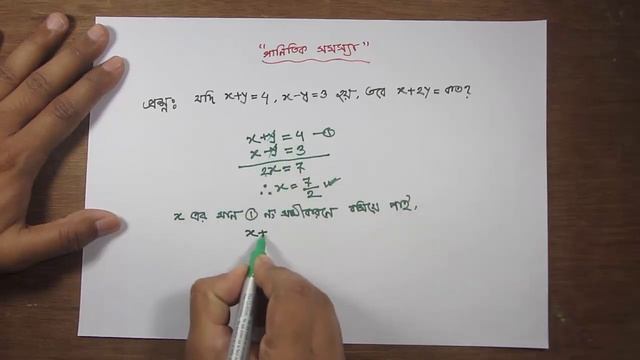 "গানিতিক সমস্যা"
প্রশ্ন: যদি x+y=4, x-y=3 হয়, তবে x+2y=কত?
x+y = 4 —①
x-y = 3
2x = 7
∴ x = 7/2
x এর মান ① নং সমীকরনে বসিয়ে পাই,
x+